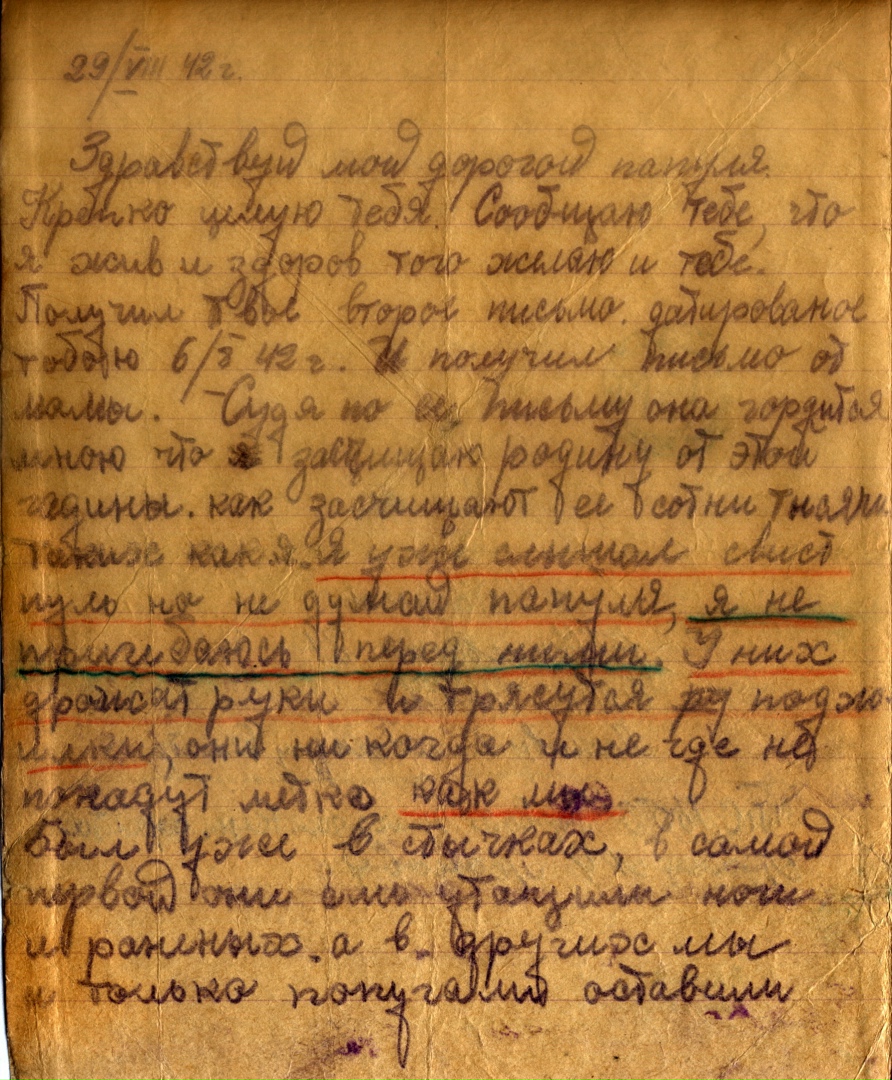 29/VIII 42 г.
Здравствуй мой дорогой папуля.
Крепко целую тебя. Сообщаю тебе, что
я жив и здоров того желаю и тебе.
Получил твое второе письмо. датированое
тобою 6/ 42 г. И получил письмо от
мамы. Судя по ее письму она гордится
мною что я защищаю родину от этой
гадины. как засчищают ее сотни тысячи
таких как я. Я уже слышал свист
пуль но не думай папуля, я не
пригибаюсь перед ними. У них
дрожат руки и трясутся поджи
лки, они ни когда и не где не
попадут метко как мы.
Был уже в стычках, в самой
первой они еле утащили ноги
и раненых. а в других мы
и только попугали оставили